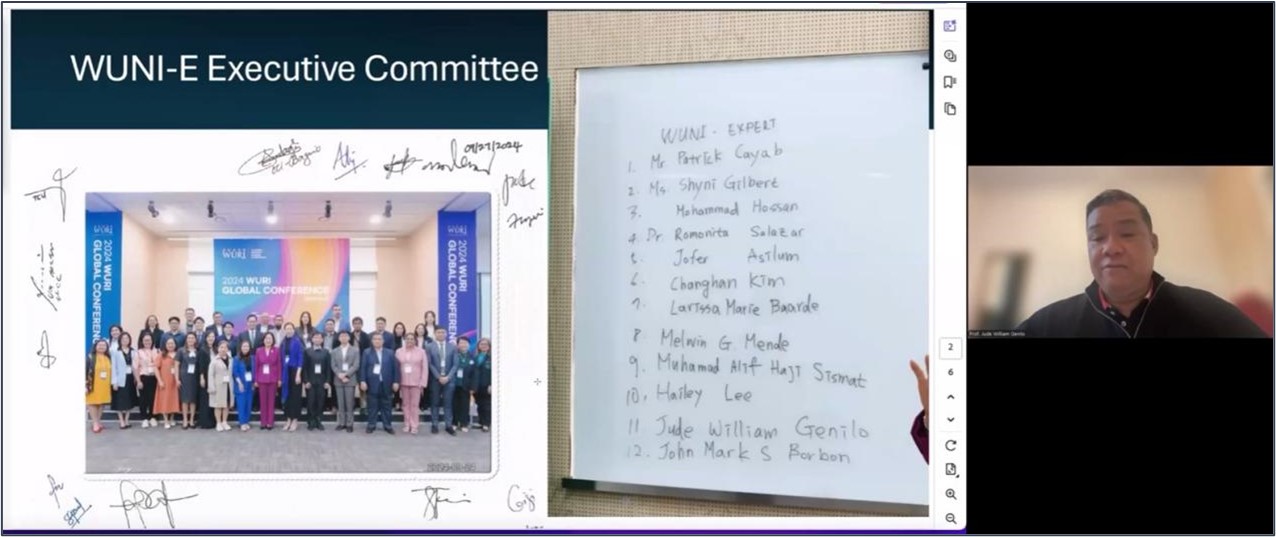 WUNI-E Executive Committee
09/27/2024
WURI
2024 WURI
GLOBAL CONFERENCE
WURI
2024 WURI
GLOBAL CONFERENCE
WURI
2024 WURI
GLOBAL CONFERENC
WUNI - EXPERT
1. Mr Patrick Cayab
2. Ms. Shyni Gilbert
3. Mohammad Hossan
4. Dr. Romonita Salazar
5. Jofer Asilum
6. Changhan Kim
7. Larissa Marie Baarde
8. Melwin G. Mende
9. Muhamad Alif Haji Sismat
10, Hailey Lee
11 Jude William Genilo
12. John Mark S Borbon
2
6
Prof. Jude William Genilo